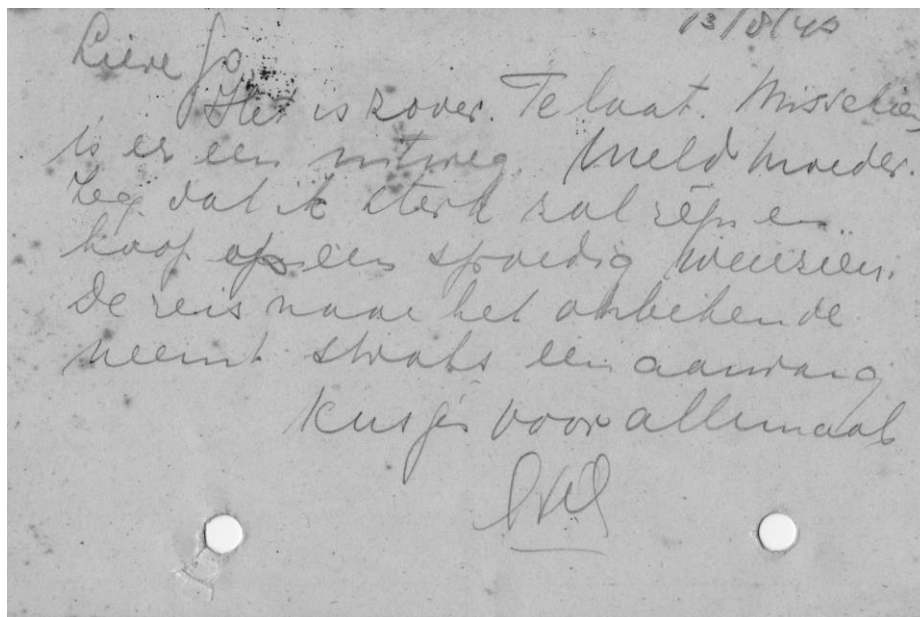 13/8/40
Lieve Jo,
Het is zover. Te laat. Misschien
is er een uitweg. Meld moeder.
Zeg dat ik sterk zal zijn en
hoop op een spoedig weerzien.
De reis naar het onbekende
neemt straks een aanvang
Kusjes voor allemaal